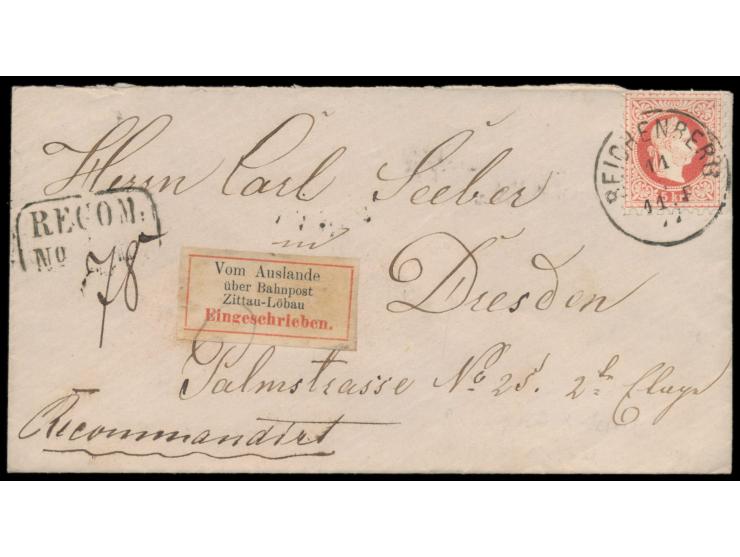 REICHENBERG
11
5 KR
Herrn Carl Seeber
in
Dresden
RECOM.
No 78
Vom Auslande
über Bahnpost
Zittau-Löbau
Eingeschrieben.
Palmstrasse No 25. 2te Etage
Recommandirt